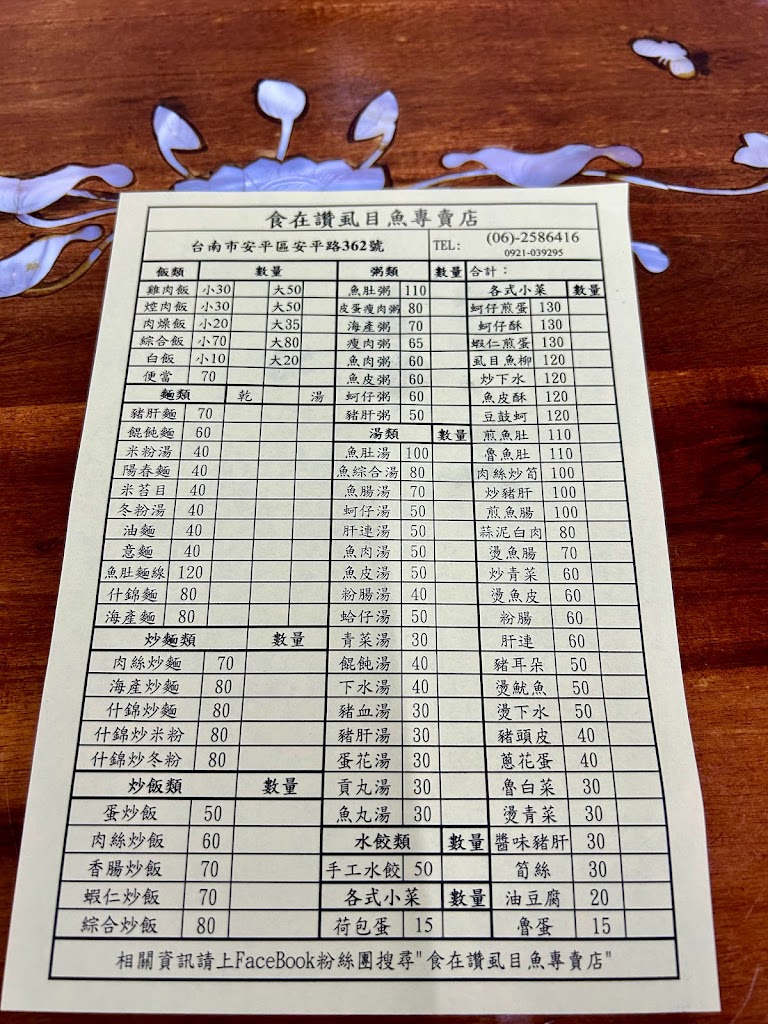 食在讚虱目魚專賣店
台南市安平區安平路362號 TEL: (06)-2586416
0921-039295
飯類 數量
雞肉飯 小30 大50
焢肉飯 小30 大50
肉燥飯 小20 大35
綜合飯 小70 大80
白飯 小10 大20
便當 70
麵類 乾 湯
豬肝麵 70
餛飩麵 60
米粉湯 40
陽春麵 40
米苔目 40
冬粉湯 40
油麵 40
意麵 40
魚肚麵線 120
什錦麵 80
海產麵 80
炒麵類 數量
肉絲炒麵 70
海產炒麵 80
什錦炒麵 80
什錦炒米粉 80
什錦炒冬粉 80
炒飯類 數量
蛋炒飯 50
肉絲炒飯 60
香腸炒飯 70
蝦仁炒飯 70
綜合炒飯 80
粥類 數量
魚肚粥 110
皮蛋瘦肉粥 80
海產粥 70
瘦肉粥 65
魚肉粥 60
魚皮粥 60
蚵仔粥 60
豬肝粥 50
湯類 數量
魚肚湯 100
魚綜合湯 80
魚腸湯 70
蚵仔湯 50
肝連湯 50
魚肉湯 50
魚皮湯 50
粉腸湯 40
蛤仔湯 50
青菜湯 30
餛飩湯 40
下水湯 40
豬血湯 30
豬肝湯 30
蛋花湯 30
貢丸湯 30
魚丸湯 30
水餃類 數量
手工水餃 50
各式小菜 數量
荷包蛋 15
合計：
各式小菜 數量
蚵仔煎蛋 130
蚵仔酥 130
蝦仁煎蛋 130
虱目魚柳 120
炒下水 120
魚皮酥 120
豆鼓蚵 120
煎魚肚 110
魯魚肚 110
肉絲炒筍 100
炒豬肝 100
煎魚腸 100
蒜泥白肉 80
燙魚腸 70
炒青菜 60
燙魚皮 60
粉腸 60
肝連 60
豬耳朵 50
燙魷魚 50
燙下水 50
豬頭皮 40
蔥花蛋 40
魯白菜 30
燙青菜 30
醬味豬肝 30
筍絲 30
油豆腐 20
魯蛋 15
相關資訊請上FaceBook粉絲團搜尋"食在讚虱目魚專賣店"